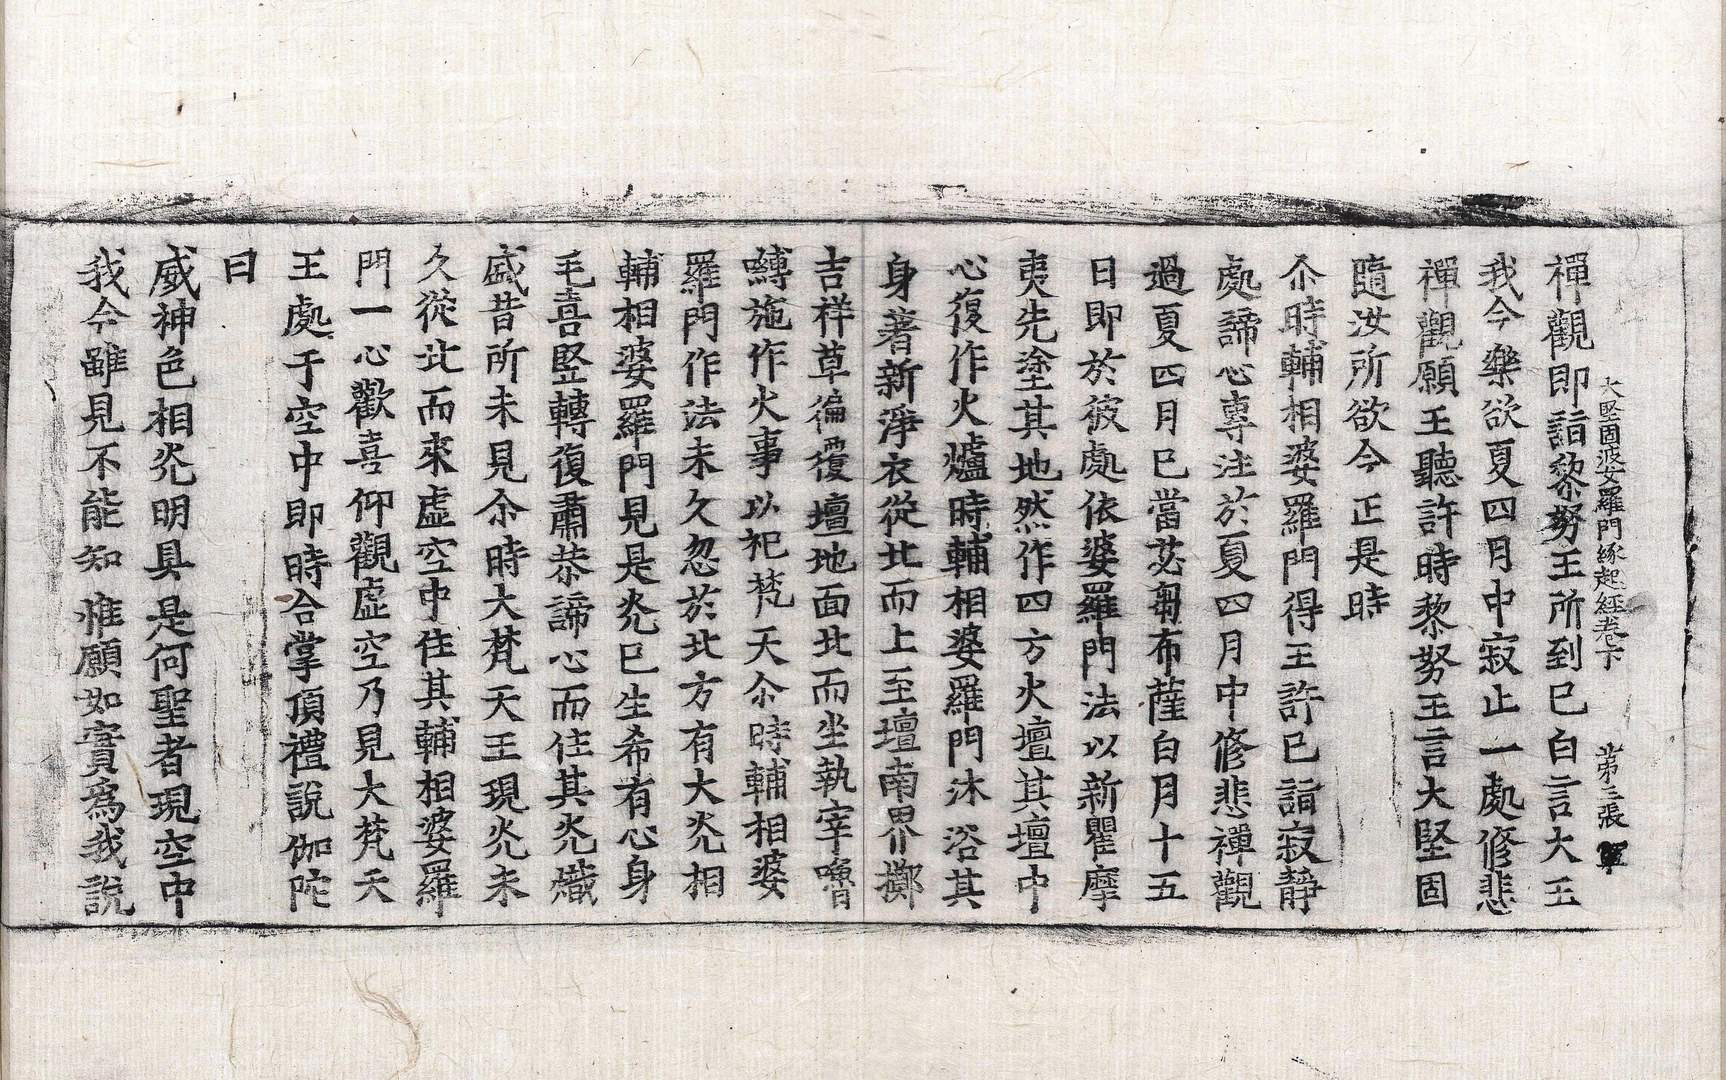 大堅固婆羅門緣起經卷下 第三張
禪觀即詣黎努王所到已白言大王
我今樂欲夏四月中寂止一處修悲
禪觀願王聽許時黎努王言大堅固
隨汝所欲今正是時
尒時輔相婆羅門得王許已詣寂靜
處諦心專注於夏四月中修悲禪觀
過夏四月已當苾芻布薩白月十五
日即於彼處依婆羅門法以新瞿摩
夷先塗其地然作四方火壇其壇中
心復作火爐時輔相婆羅門沐浴其
身著新淨衣從北而上至壇南界擲
吉祥草徧覆壇地面北而坐執宰嚕
嚩施作火事以祀梵天尒時輔相婆
羅門作法未久忽於北方有大炎相
輔相婆羅門見是炎已生希有心身
毛喜竪轉復肅恭諦心而住其炎熾
盛昔所未見尒時大梵天王現炎未
久從北而來虛空中住其輔相婆羅
門一心歡喜仰觀虛空乃見大梵天
王處于空中即時合掌頂禮說伽陀
曰
威神色相炎明具 是何聖者現空中
我今雖見不能知 惟願如實爲我說